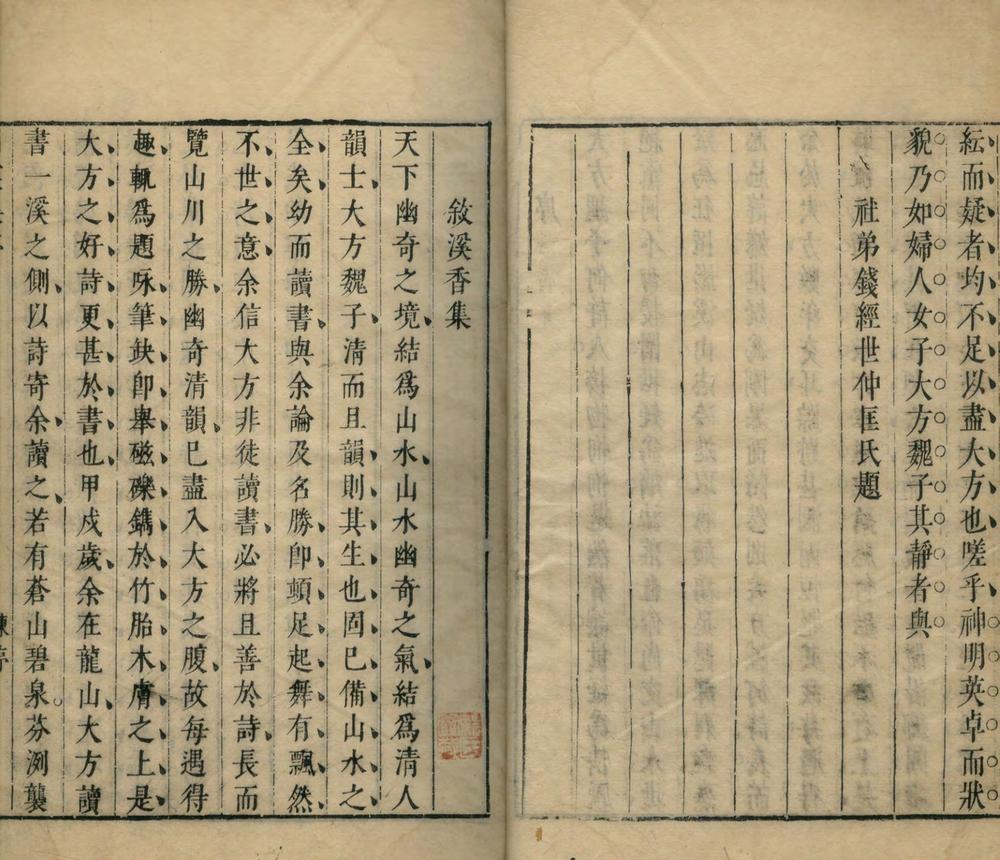 紜而疑者均不足以盡大方也嗟乎神明英卓而狀
貌乃如婦人女子大方魏子其靜者與
社弟錢經世仲匡氏題
敘溪香集
天下幽奇之境結爲山水山水幽奇之氣結爲清人
韻士大方魏子清而且韻則其生也固已備山水之
全矣幼而讀書與余論及名勝卽頓足起舞有飄然
不世之意余信大方非徒讀書必將且善於詩長而
覽山川之勝幽奇清韻已盡入大方之腹故每遇得
趣輒爲題咏筆缺卽舉磁礫鐫於竹胎木膚之上是
大方之好詩更甚於書也甲戍歲余在龍山大方讀
書一溪之側以詩寄余讀之若有蒼山碧泉芬洌襲